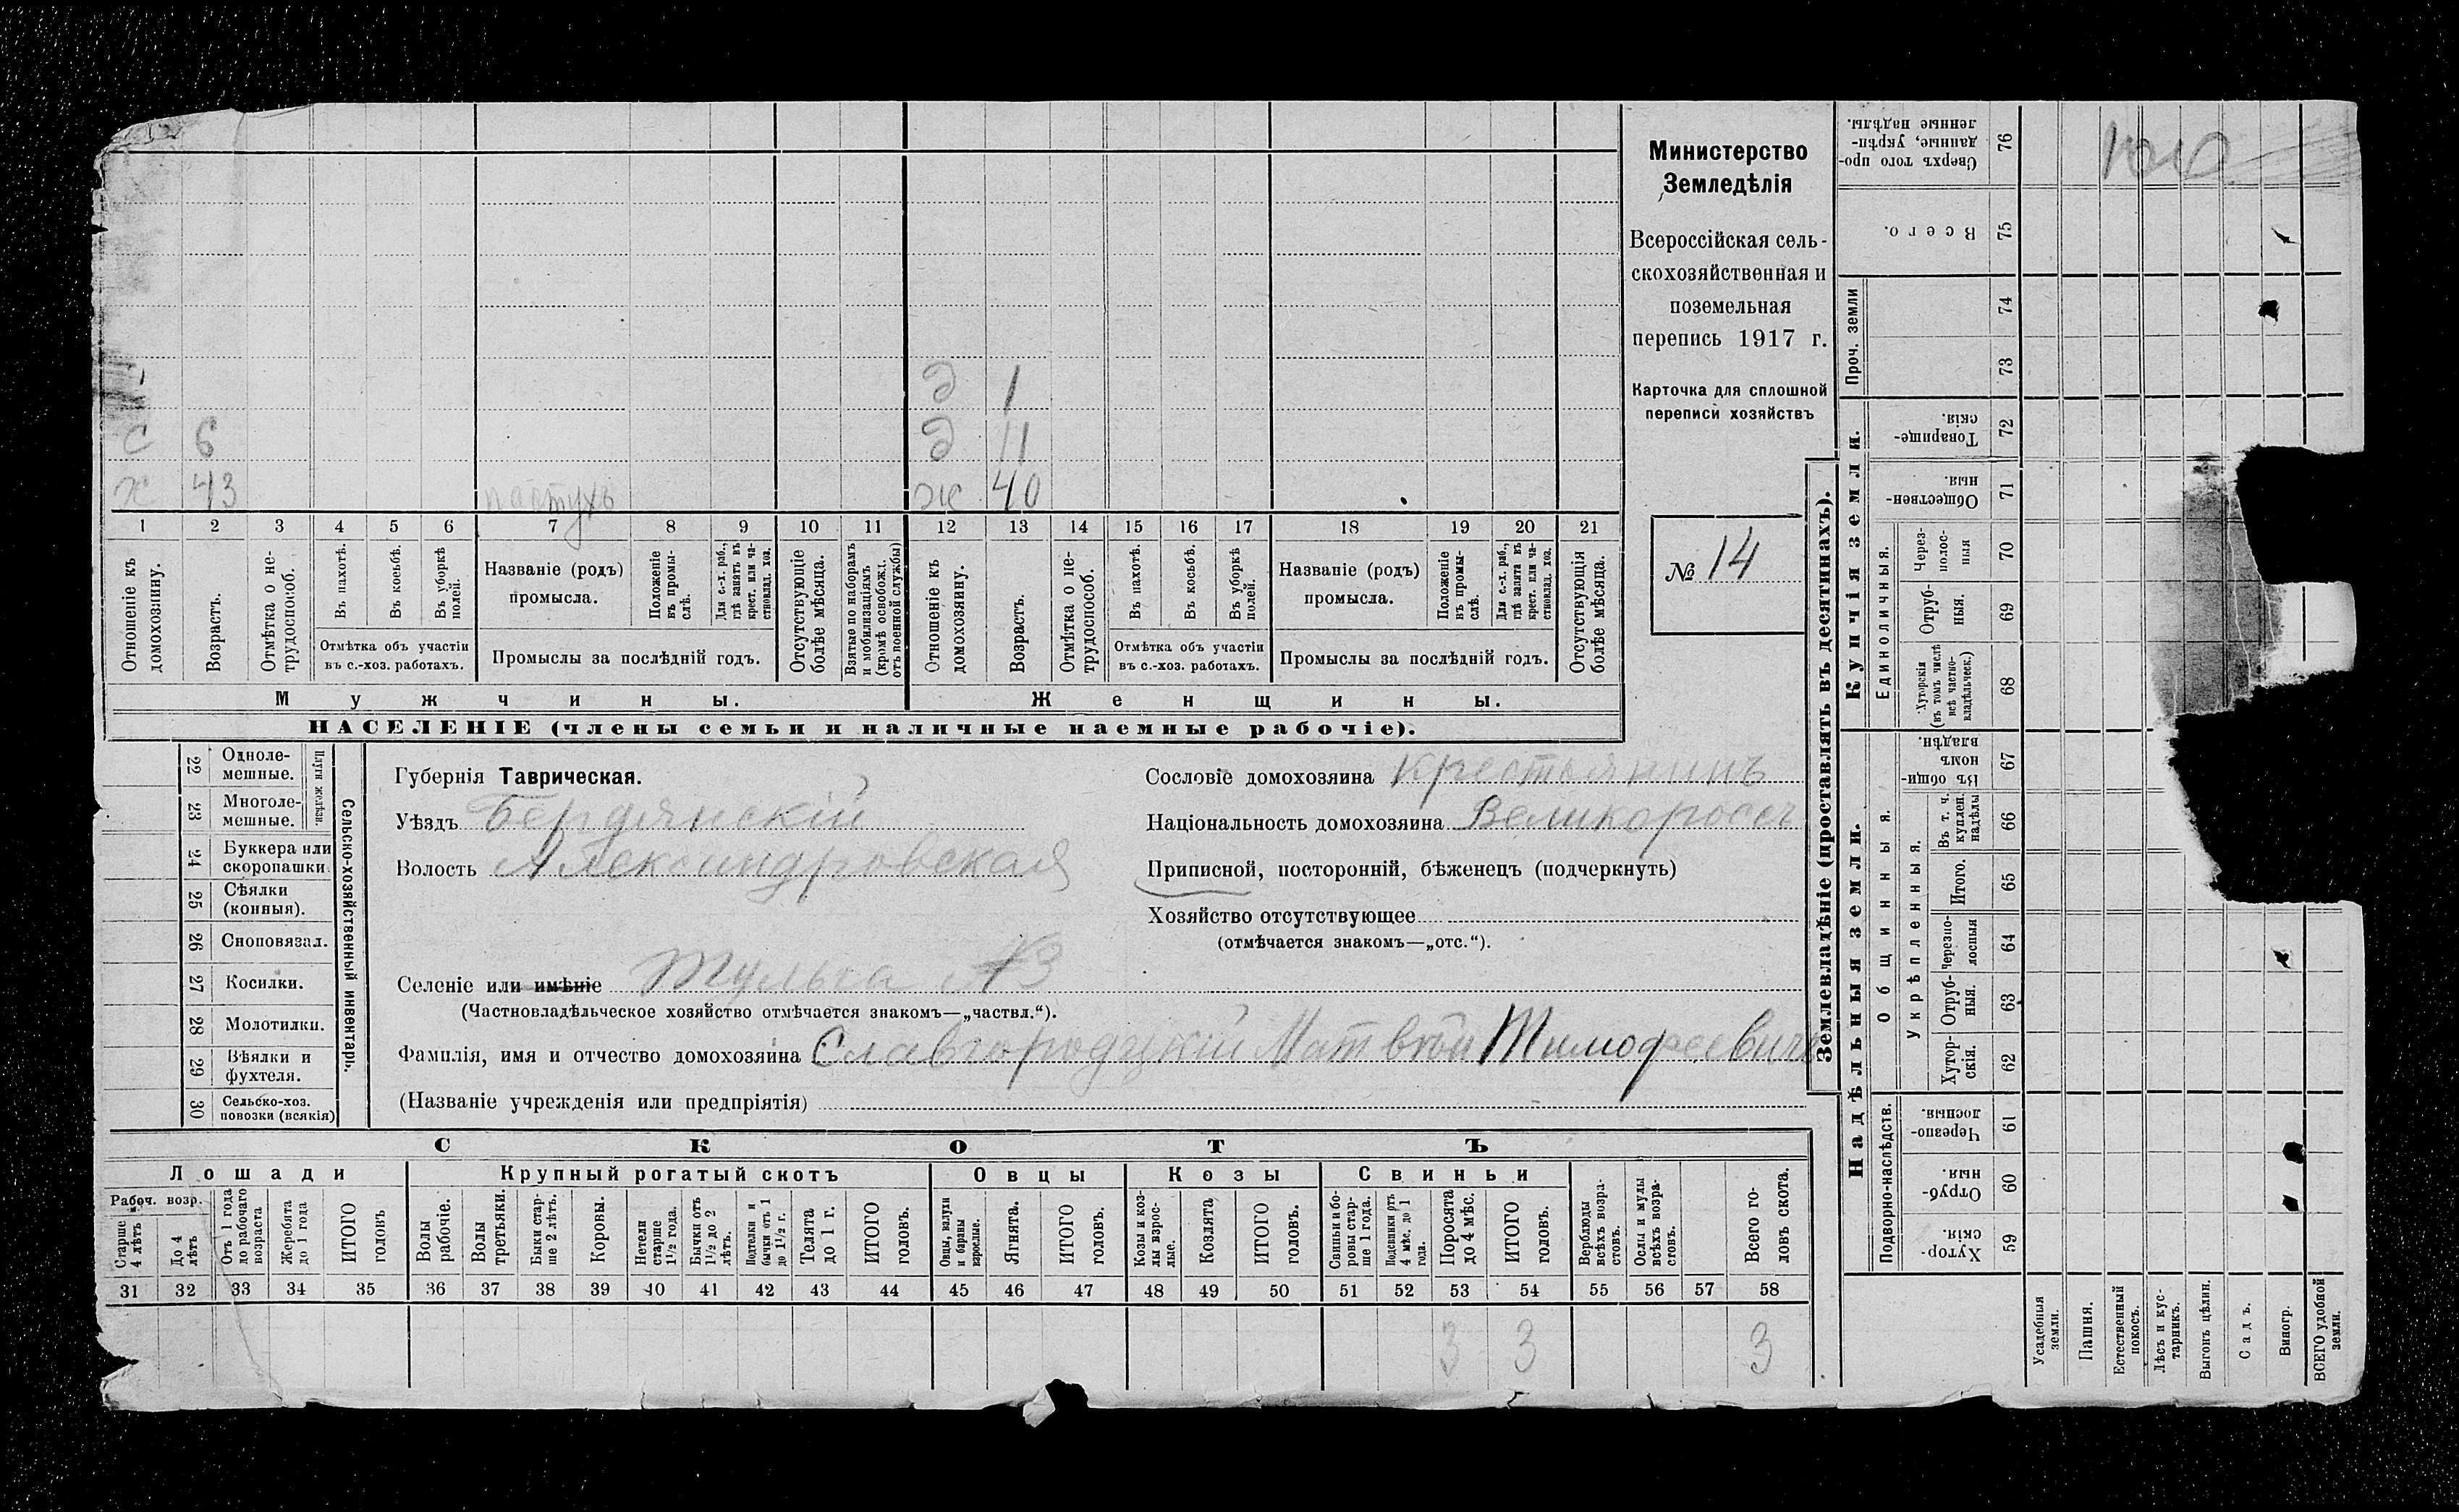 Министерство
Земледѣлія
Всероссійская сель-
скохозяйственная и
поземельная
перепись 1917 г.
Карточка для сплошной
переписи хозяйствъ
№ 14
д 1
с 6 д 11
х 43 пастухъ ж 40
1 2 3 4 5 6 7 8 9 10 11 12 13 14 15 16 17 18 19 20 21
Отношеніе къ домохозяину.
Возрастъ.
Отмѣтка о не-
трудоспособ.
Въ пахотѣ.
Въ косьбѣ.
Въ уборкѣ
полей.
Отмѣтка объ участіи
въ с.-хоз. работахъ.
Названіе (родъ)
промысла.
Положеніе
въ промы-
слѣ.
Для с.-х. раб.,
гдѣ занятъ въ
крест. или ча-
стновлад. хоз.
Промыслы за послѣдній годъ.
Отсутствующіе
болѣе мѣсяца.
Взятые по наборамъ
и мобилизаціямъ
(кромѣ освобожд.
отъ военной службы)
Отношеніе къ
домохозяину.
Возрастъ.
Отмѣтка о не-
трудоспособ.
Въ пахотѣ.
Въ косьбѣ.
Въ уборкѣ
полей.
Отмѣтка объ участіи
въ с.-хоз. работахъ.
Названіе (родъ)
промысла.
Положеніе
въ промы-
слѣ.
Для с.-х. раб.,
гдѣ занята въ
крест. или ча-
стновлад. хоз.
Промыслы за послѣдній годъ.
Отсутствующія
болѣе мѣсяца.
Мужчины.
Женщины.
НАСЕЛЕНІЕ (члены семьи и наличные наемные рабочіе).
22 Одноле-
мешные.
23 Многоле-
мешные.
Плуги желѣзн.
24 Буккера или
скоропашки
25 Сѣялки
(конныя).
26 Сноповязал.
27 Косилки.
28 Молотилки.
29 Вѣялки и
фухтеля.
30 Сельско-хоз.
повозки (всякія)
Сельско-хозяйственный инвентарь.
Губернія Таврическая.
Уѣздъ Бердянскій
Волость Александровская
Селеніе или имѣніе
(Частновладѣльческое хозяйство отмѣчается знакомъ—„частвл.“).
Фамилія, имя и отчество домохозяина Славгородцкій Матвѣй Тимофеевичъ
(Названіе учрежденія или предпріятія)
Сословіе домохозяина крестьянинъ
Національность домохозяина Великороссъ
Приписной, посторонній, бѣженецъ (подчеркнуть)
Хозяйство отсутствующее
(отмѣчается знакомъ—„отс.“).
СКОТЪ
Лошади
Крупный рогатый скотъ
Овцы
Козы
Свиньи
Рабоч. возр.
Старше
4 лѣтъ
До 4
лѣтъ
Отъ 1 года
до рабочаго
возраста
Жеребята
до 1 года
ИТОГО
головъ
Волы
рабочіе.
Волы
третьяки.
Быки стар-
ше 2 лѣтъ.
Коровы.
Нетели
старше
1½ года.
Бычки отъ
1½ до 2
лѣтъ.
Подтелки и
бычки отъ 1
до 1½ г.
Телята
до 1 г.
ИТОГО
головъ.
Овцы, валухи
и бараны
взрослые.
Ягнята.
ИТОГО
головъ.
Козы и коз-
лы взрос-
лые.
Козлята
ИТОГО
головъ.
Свиньи и бо-
ровы стар-
ше 1 года.
Подсвинки отъ
4 мѣс. до 1
года.
Поросята
до 4 мѣс.
ИТОГО
головъ.
Верблюды
всѣхъ возра-
стовъ.
Ослы и мулы
всѣхъ возра-
стовъ.
Всего го-
ловъ скота.
31 32 33 34 35 36 37 38 39 40 41 42 43 44 45 46 47 48 49 50 51 52 53 54 55 56 57 58
3 3 3
Землевладѣніе (проставлять въ десятинахъ).
Купчія земли.
Надѣльныя земли.
Сверхъ того про-
данные, укрѣп-
ленные надѣлы.
76
Всего.
75
Проч. земли
74
73
Товарище-
скія.
72
Обществен-
ныя.
71
Единоличныя.
Через-
полос-
ныя
70
Отруб-
ныя.
69
Хуторскія
(въ томъ числѣ
всѣ частно-
владѣльческ.)
68
Общинныя.
Въ общи-
номъ
владѣн.
67
Укрѣпленныя.
Въ т. ч.
куплен.
надѣлы
66
Итого.
65
Черезпо-
лосныя
64
Отруб-
ныя.
63
Хутор-
скія.
62
Подворно-наслѣдств.
Черезпо-
лосныя.
61
Отруб-
ныя.
60
Хутор-
скія.
59
Усадебныя
земли.
Пашня.
Естественный
покосъ.
Лѣсъ и кус-
тарникъ.
Выгонъ цѣлин.
Садъ.
Виногр.
ВСЕГО удобной
земли.